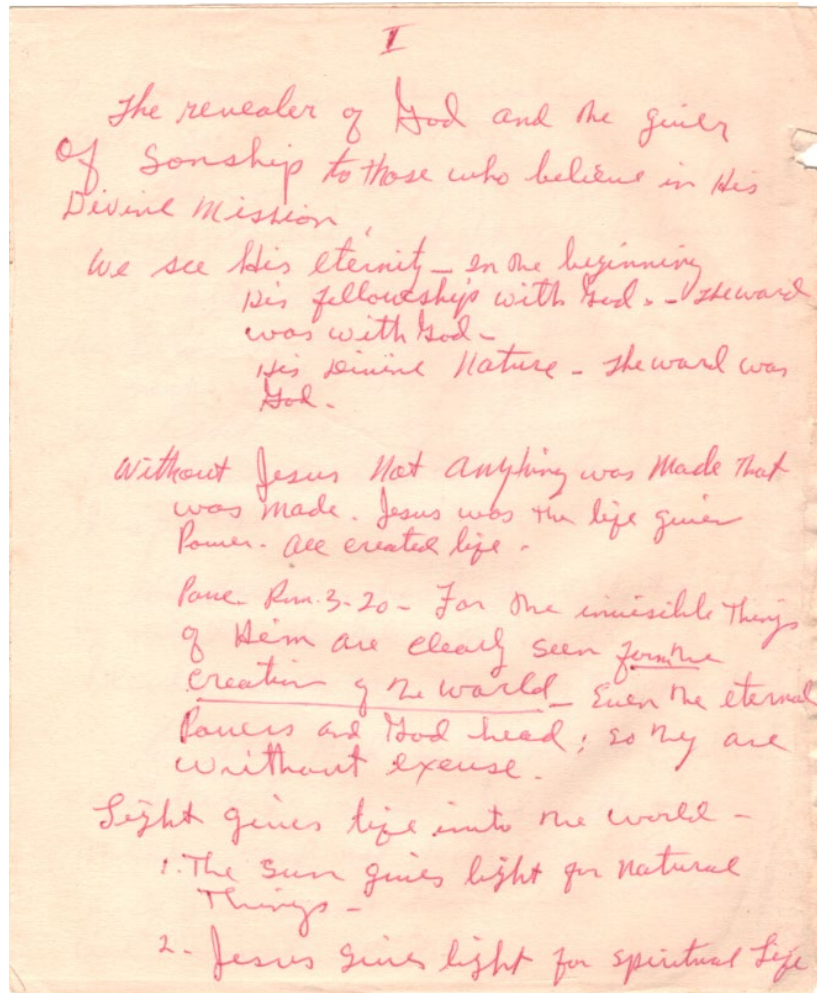 I
The revealer of God and the giver
of Sonship to those who believe in His
Divine Mission,
We see His eternity - In the beginning
His fellowship with God. - The word
was with God -
His Divine Nature - The word was
God.
Without Jesus Not anything was Made that
was made. Jesus was the life giver
Power - all created life.
Rom. 3-20 - For the invisible Things
of Him are clearly seen from the
creation of the world - Even the eternal
Powers and God head; so they are
without excuse.
Light gives life into the world -
1. The Sun gives light for natural
Things -
2 - Jesus gives light for spiritual Life